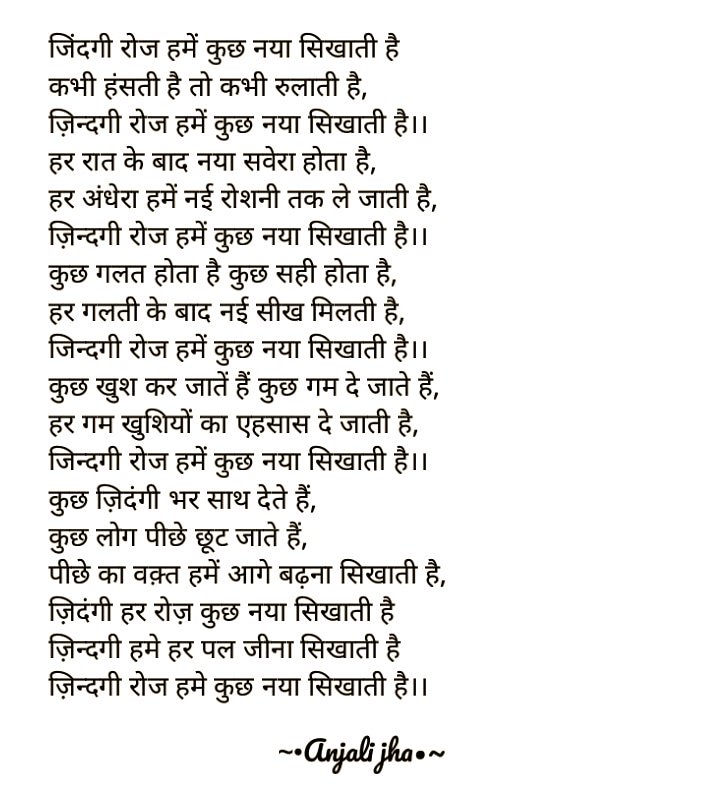 जिंदगी रोज हमें कुछ नया सिखाती है
कभी हंसती है तो कभी रुलाती है,
ज़िन्दगी रोज हमें कुछ नया सिखाती है।।
हर रात के बाद नया सवेरा होता है,
हर अंधेरा हमें नई रोशनी तक ले जाती है,
ज़िन्दगी रोज हमें कुछ नया सिखाती है।।
कुछ गलत होता है कुछ सही होता है,
हर गलती के बाद नई सीख मिलती है,
जिन्दगी रोज हमें कुछ नया सिखाती है।।
कुछ खुश कर जातें हैं कुछ गम दे जाते हैं,
हर गम खुशियों का एहसास दे जाती है,
जिन्दगी रोज हमें कुछ नया सिखाती है।।
कुछ ज़िदंगी भर साथ देते हैं,
कुछ लोग पीछे छूट जाते हैं,
पीछे का वक़्त हमें आगे बढ़ना सिखाती है,
ज़िदंगी हर रोज़ कुछ नया सिखाती है
ज़िन्दगी हमे हर पल जीना सिखाती है
ज़िन्दगी रोज हमे कुछ नया सिखाती है।।
~•Anjali jha•~